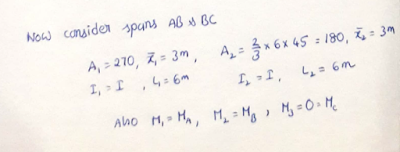 Now consider spans AB & BC
A₁ = 270, x̄₁ = 3m, A₂ = 2/3 × 6 × 45 = 180, x̄₂ = 3m
I₁ = I, L₁ = 6m I₂ = I, L₂ = 6m
Also M₁ = M_A, M₂ = M_B, M₃ = 0 = M_C